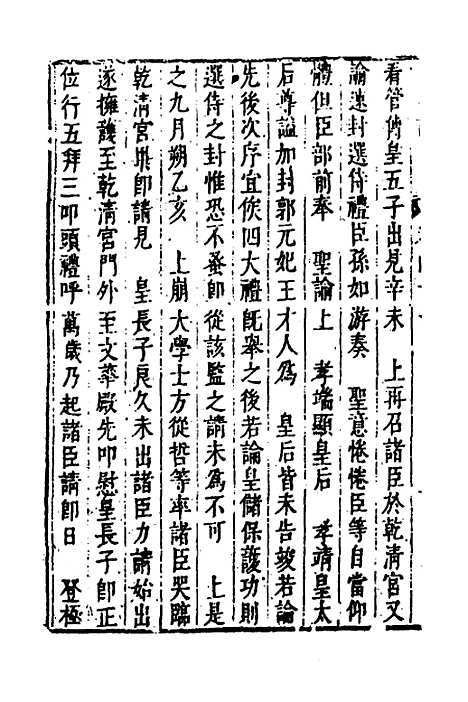 看管傳皇五子出見辛未　上再召諸臣於乾清宮又
諭速封選侍禮臣孫如游奏　聖意惓惓臣等自當仰
體但臣部前奉　聖諭上　孝端顯皇后　孝靖皇太
后尊謚加封郭元妃王才人爲　皇后皆未告竣若論
先後次序宜俟四大禮旣舉之後若論皇儲保護功則
選侍之封惟恐不蚤卽從該監之請未爲不可　上是
之九月朔乙亥　上崩大學士方從哲等率諸臣哭臨
乾清宮畢卽請見　皇長子良久未出諸臣力請始出
遂擁護至乾清宮門外至文華殿先叩慰皇長子卽正
位行五拜三叩頭禮呼萬歲乃起諸臣請卽日　登極